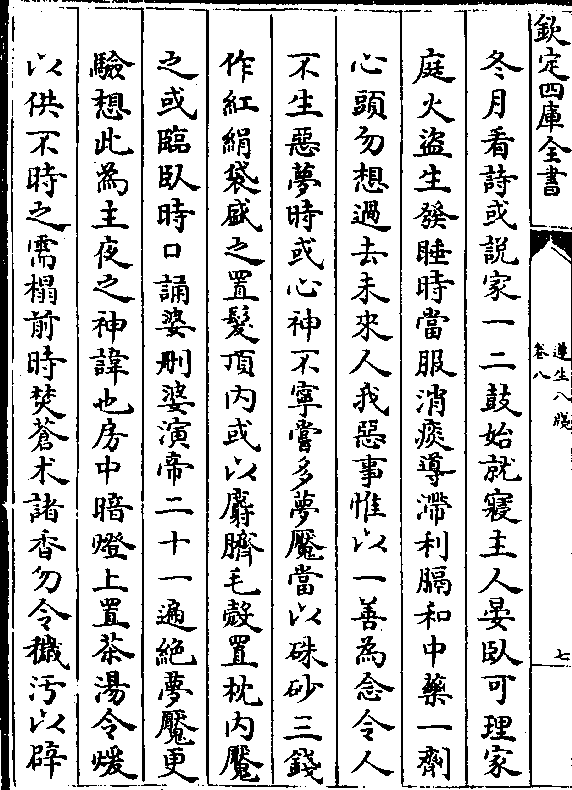 欽定四庫全書
遵生八牋
卷八
七
冬月看詩或說家一二鼓始就寢主人晏臥可理家
庭火盜生發睡時當服消痰導滯利膈和中藥一劑
心頭勿想過去未來人我惡事惟以一善為念令人
不生惡夢時或心神不寧嘗多夢魘當以硃砂三錢
作紅絹袋盛之置髮頂內或以麝臍毛殼置枕內魘
之或臨臥時口誦婆刪婆演帝二十一遍絕夢魘更
驗想此為主夜之神諱也房中暗燈上置茶湯令煖
以供不時之需榻前時焚蒼朮諸香勿令穢汚以辟